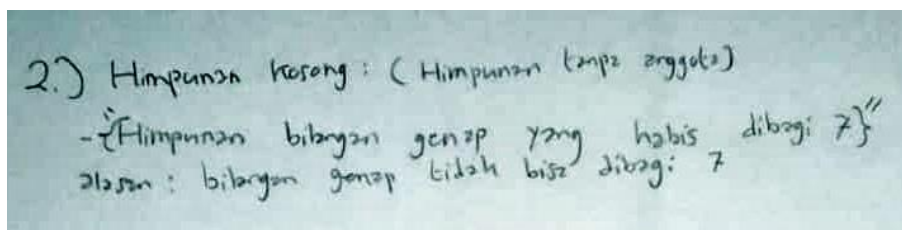 2.) Himpunan kosong : ( Himpunan tanpa anggota)
- "{Himpunan bilangan genap yang habis dibagi 7}"
alasan : bilangan genap tidak bisa dibagi 7